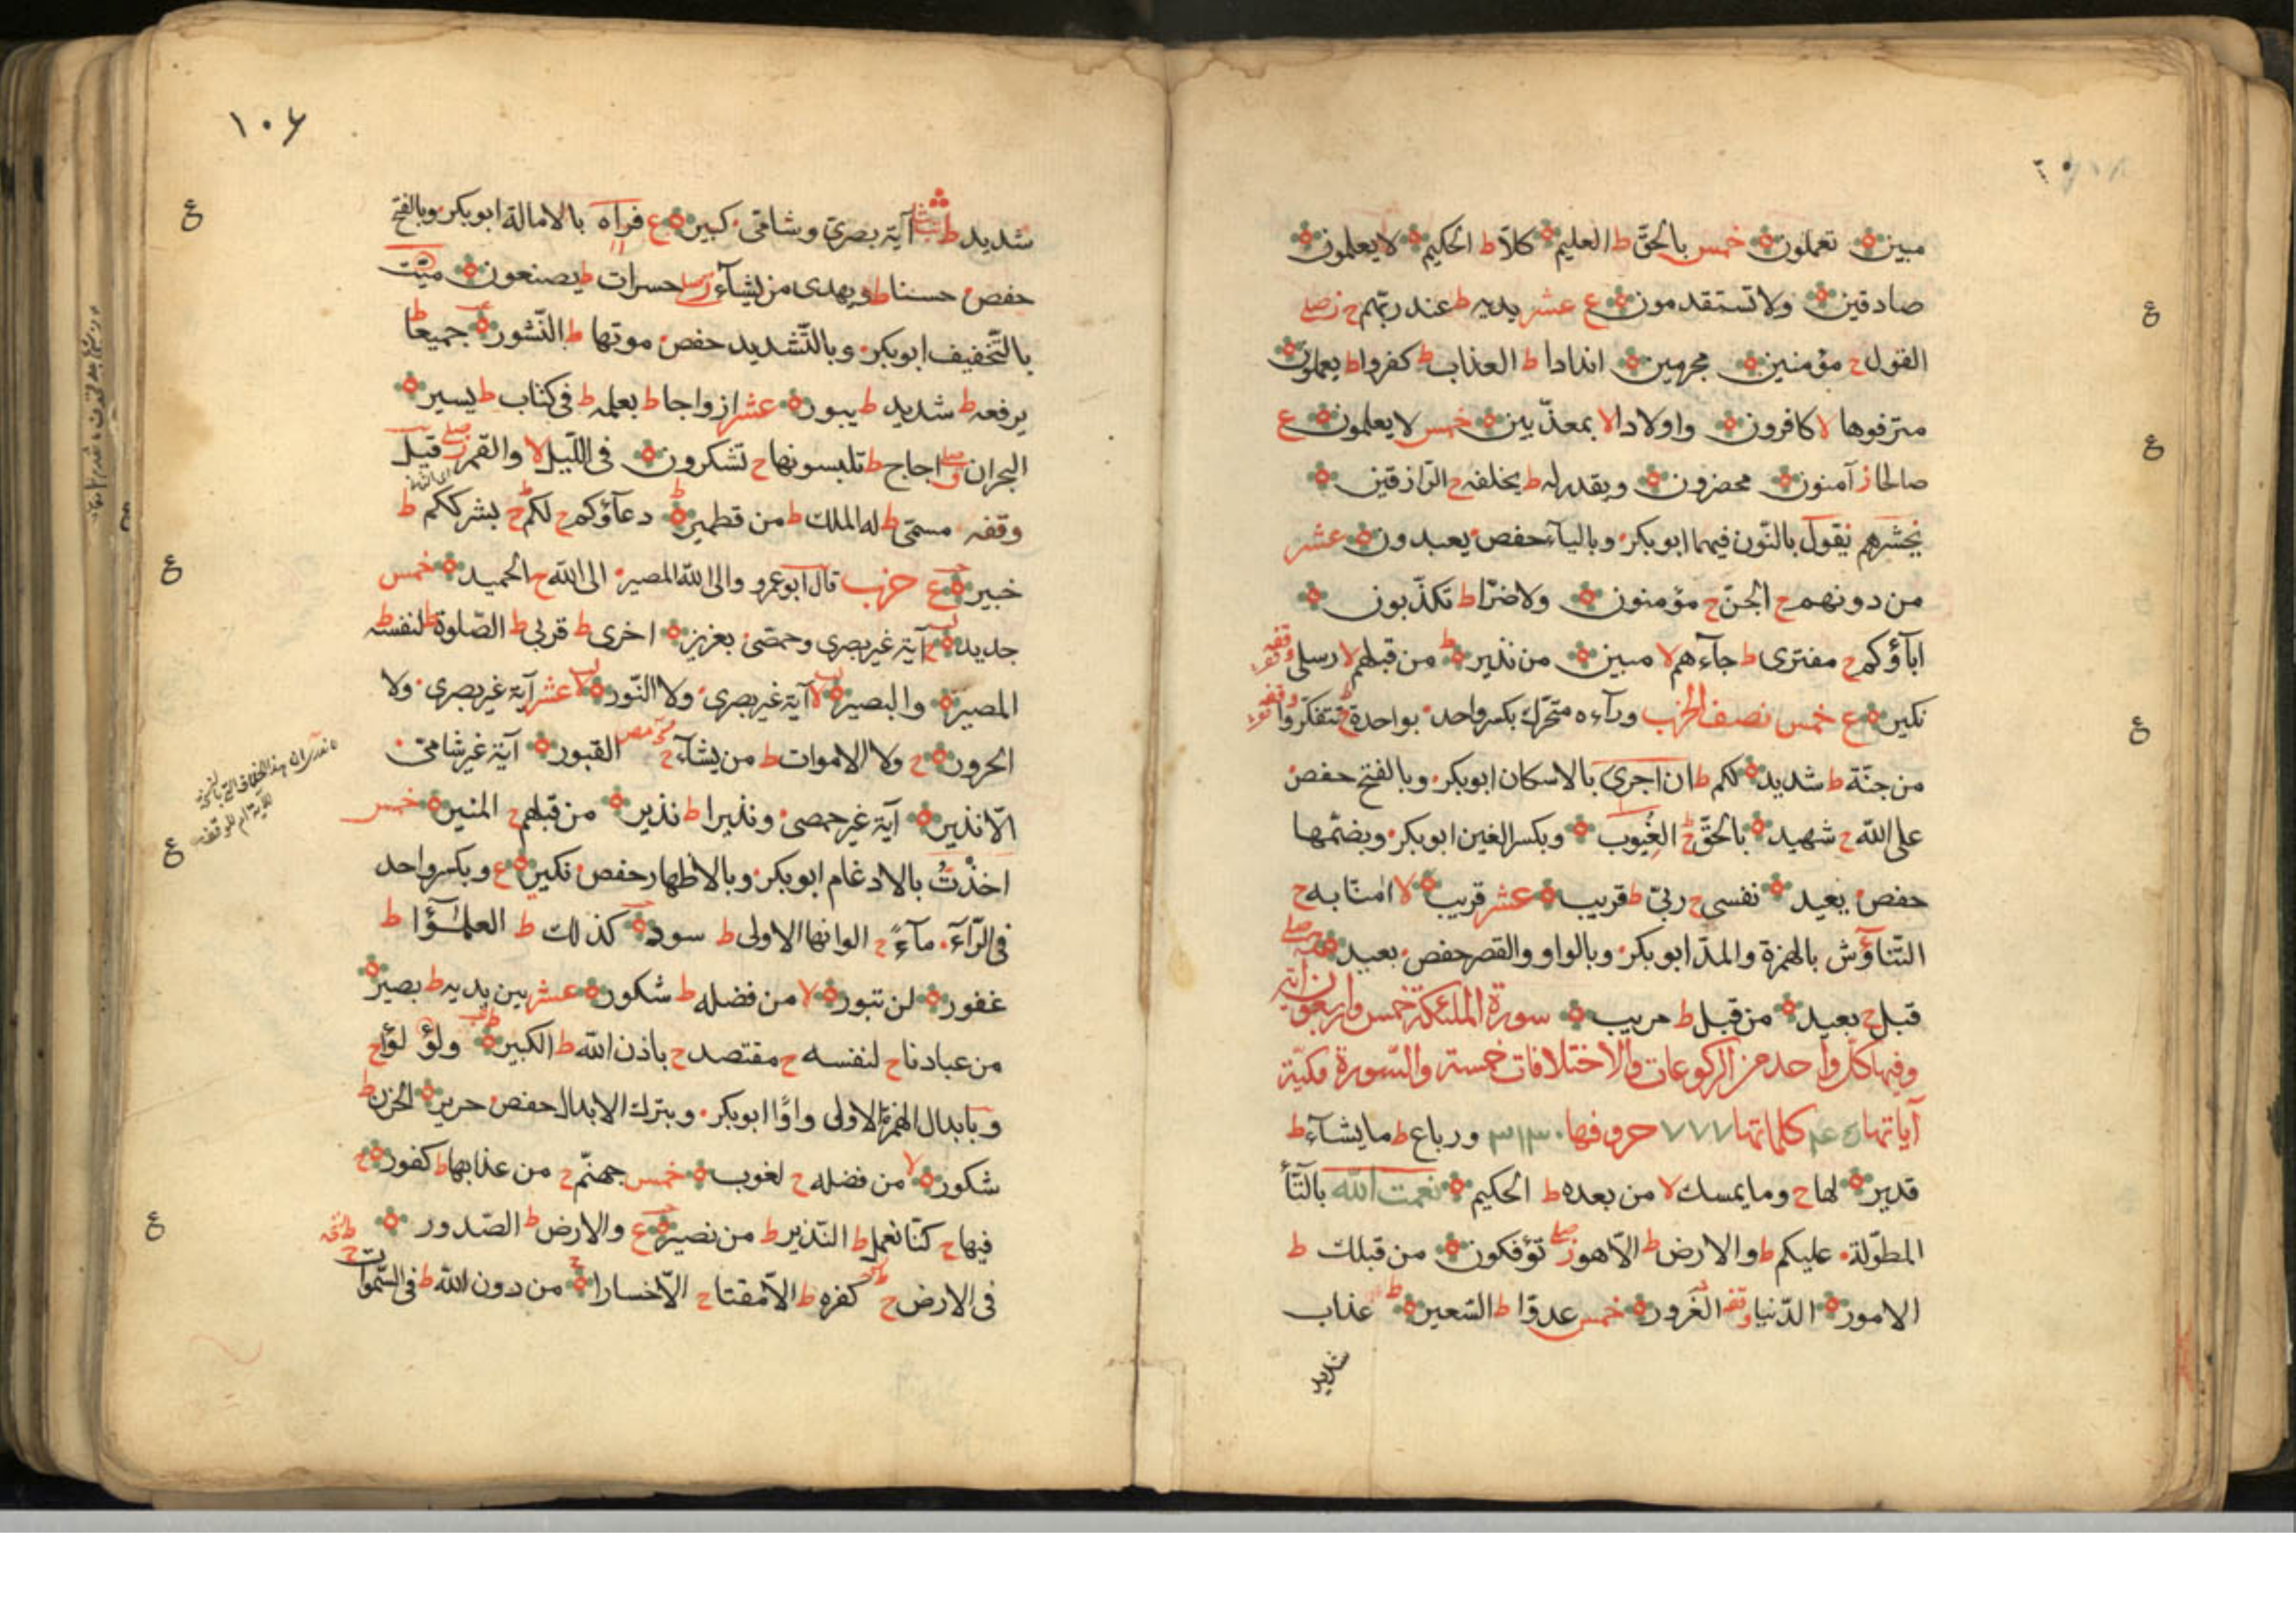 مبين تعملون خمس بالحقّ ط العليم كلاّ ط الحكيم لا يعلمون
صادقين ولا تستقدمون ع عشر يديه ط عند ربّهم ح ز صلى
القول ح مؤمنين مجرمين اندادا ط العذاب ط كفروا ط يعملون
مترفوها لا كافرون واولادا لا بمعذّبين خمس لا يعلمون ع
صالحا ز آمنون محضرون ويقدر له ط يخلفه ح الرّازقين
نحشرهم نقول بالنّون فيهما ابوبكر وباليآء حفص يعبدون عشر
من دونهم ح الجنّ ح مؤمنون ولا ضرّا ط تكذّبون
اباؤكم ح مفترى ط جآءهم لا مبين من نذير ط من قبلهم لا رسلى وقفه
نكير ع خمس نصف الحزب ورآءه متحرّك بكسر واحد بواحدة ج تتفكّروا وقفه
من جنّة ط شديد لكم ط ان اجرى بالاسكان ابوبكر وبالفتح حفص
على اللّه ح شهيد بالحقّ ح الغيوب وبكسر الغين ابوبكر وبضمّها
حفص يعيد نفسى ح ربىّ ط قريب عشر قريب لا امنّا به ح
التّناؤش بالهمزة والمدّ ابوبكر وبالواو والقصر حفص بعيد صلى
قبل ح بعيد من قبل ط مريب سورة الملئكة خمس واربعون آية
وفيها كلّ واحد من الركوعات والاختلافات خمسة والسّورة مكيّة
آياتها ٤٥ كلماتها ٧٧٧ حروفها ٣١٣٠ ورباع ط ما يشآء ط
قدير لها ح وما يمسك لا من بعده ط الحكيم نعمت اللّه بالتّاء
المطوّلة عليكم ط والارض ط الاّ هو ز صلى تؤفكون من قبلك ط
الامور الدّنيا وقفه الغرور خمس عدوّا ط السّعير ط عذاب
شديد
١٠٦
شديد ط آية بصرىّ وشامىّ كبير ع فراه بالامالة ابوبكر وبالفتح
حفص حسنا ط ويهدى من يشآء ز صلى حسرات ط يصنعون ميّت
بالتّخفيف ابوبكر وبالتّشديد حفص موتها ط النّشور جميعا ط
يرفعه ط شديد ط يبور عشر ازواجا ط بعلمه ط فى كتاب ط يسير
البحران ق صلى اجاج ط تلبسونها ح تشكرون فى اللّيل لا والقمر ز صلى قيل
وقفه مسمّى ط له الملك ط من قطمير ط دعآؤكم ح لكم ط ح بشرككم ط
خبير ع حزب قال ابوعمرو والى اللّه المصير الى اللّه ح الحميد خمس
جديد ح آية غير بصرى وحمصى بعزيز اخرى ط قربى ط الصّلوة ط لنفسه ط
المصير والبصير لا آية غير بصرى ولا النّور لا عشر آية غير بصرى ولا
الحرور ح ولا الاموات ط من يشآء ح القبور آية غير شامىّ
الاّ نذير آية غير حمصى ونذيرا ط نذير من قبلهم ح المنير خمس
اخذت بالادغام ابوبكر وبالاظهار حفص نكير ع وبكسر واحد
فى الرّآء مآءً ح الوانها الاولى ط سود كذلك ط العلمٰؤا ط
غفور لن تبور لا من فضله ط شكور عشر بين يديه ط بصير
من عبادنا ح لنفسه ح مقتصد ح باذن اللّه ط الكبير ط ولؤلؤا ح
وبابدال الهمزة الاولى واوًا ابوبكر وبترك الابدال حفص حرير الحزن ط
شكور لا من فضله ح لغوب خمس جهنّم ح من عذابها ط كفور ح
فيها ح كنّا نعمل ط النّذير ط من نصير ع والارض ط الصّدور
فى الارض ح كفره ط الاّ مقتا ح الاّ خسارا ح من دون اللّه ط فى السّموات ح
ع
ع
ع
ع
ع
ع
ع
ع